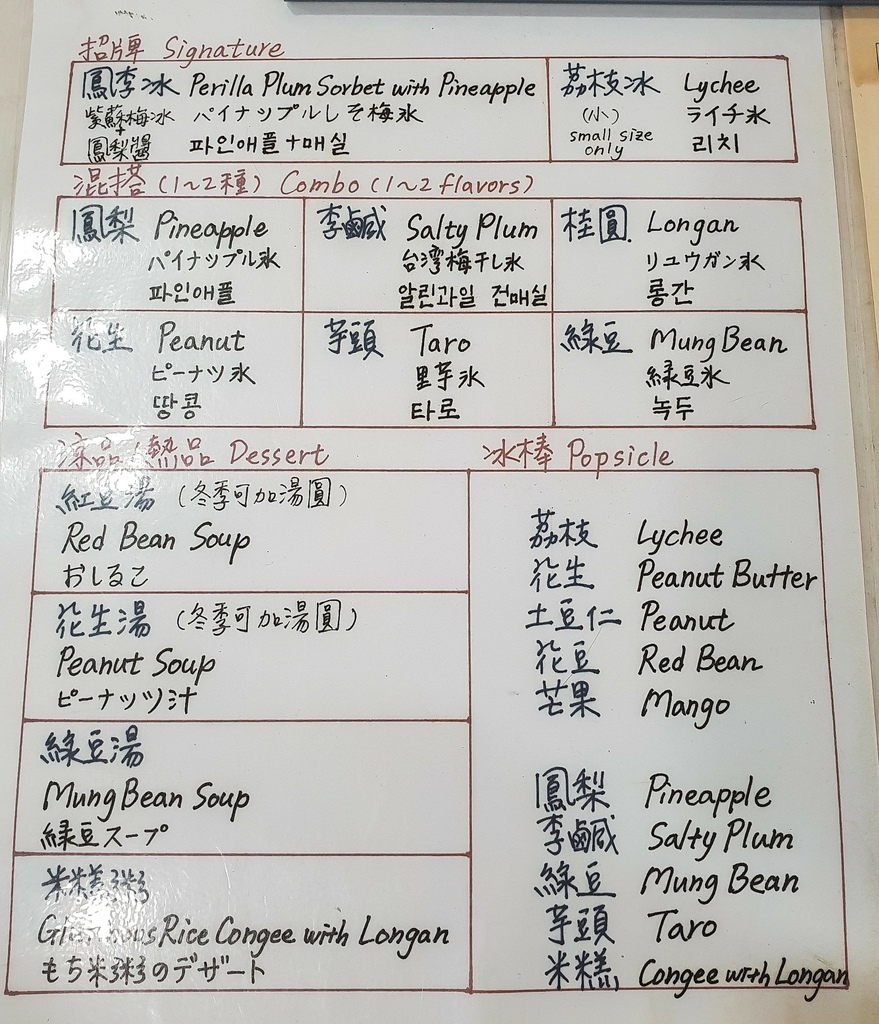 招牌 Signature
鳳李冰 Perilla Plum Sorbet with Pineapple
紫蘇梅冰 パイナップルしそ梅氷
+
鳳梨醬 파인애플+매실
荔枝冰 Lychee
(小) ライチ氷
small size only 리치
混搭 (1~2種) Combo (1~2 flavors)
鳳梨 Pineapple
パイナップル氷
파인애플
李鹹 Salty Plum
台湾梅干し氷
알린과일 건매실
桂圓 Longan
リュウガン氷
롱간
花生 Peanut
ピーナツ氷
땅콩
芋頭 Taro
里芋氷
타로
綠豆 Mung Bean
緑豆氷
녹두
涼品/熱品 Dessert
紅豆湯 (冬季可加湯圓)
Red Bean Soup
おしるこ
花生湯 (冬季可加湯圓)
Peanut Soup
ピーナッツ汁
綠豆湯
Mung Bean Soup
緑豆スープ
米糕粥
Rice Congee with Longan
もち米粥のデザート
冰棒 Popsicle
荔枝 Lychee
花生 Peanut Butter
土豆仁 Peanut
花豆 Red Bean
芒果 Mango
鳳梨 Pineapple
李鹹 Salty Plum
綠豆 Mung Bean
芋頭 Taro
米糕 Congee with Longan